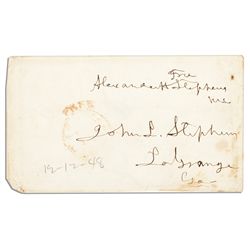 Free
Alexander H Stephens
M C
FREE
John L. Stephens
LaGrange
Ga
12-12-48